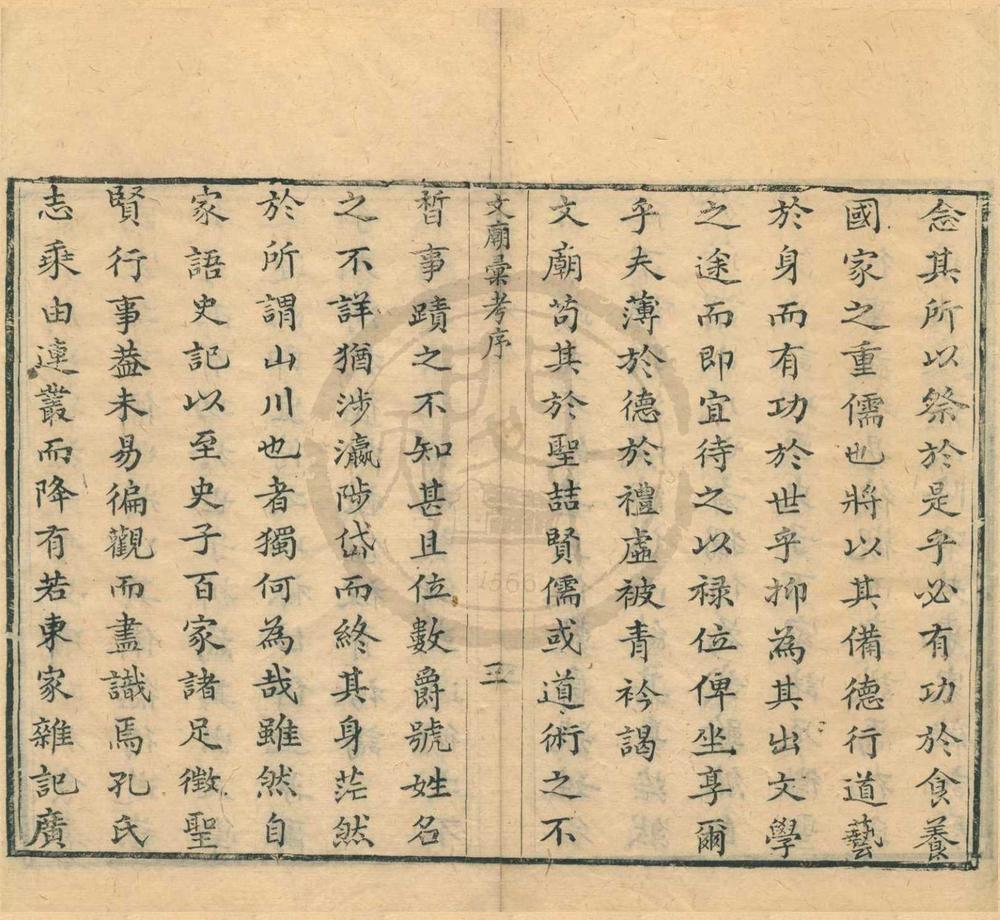 念其所以祭於是乎必有功於食養
國家之重儒也將以其備德行道藝
於身而有功於世乎抑為其出文學
之途而即宜待之以祿位俾坐享爾
乎夫薄於德於禮虛被青衿謁
文廟苟其於聖喆賢儒或道術之不
文廟彙考序
三
晢事蹟之不知甚且位數爵號姓名
之不詳猶涉瀛陟岱而終其身茫然
於所謂山川也者獨何為哉雖然自
家語史記以至史子百家諸足徵聖
賢行事葢未易徧觀而盡識焉孔氏
志乘由連叢而降有若東家雜記廣